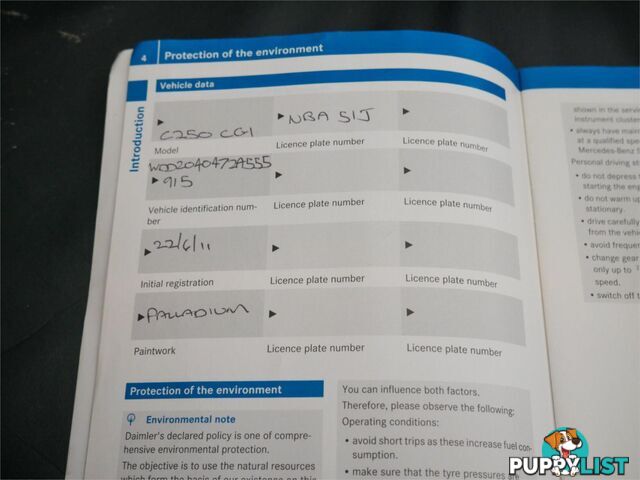 4 Protection of the environment
Introduction
Vehicle data
C250 CGI
Model
NBA 51J
Licence plate number
Licence plate number
WDD2040472A555
915
Vehicle identification num-
ber
Licence plate number
Licence plate number
22/6/11
Initial registration
Licence plate number
Licence plate number
PALLADIUM
Paintwork
Licence plate number
Licence plate number
Protection of the environment
Environmental note
Daimler's declared policy is one of compre-
hensive environmental protection.
The objective is to use the natural resources
which form the basis of our existence on this
You can influence both factors.
Therefore, please observe the following:
Operating conditions:
• avoid short trips as these increase fuel con-
sumption.
• make sure that the tyre pressures are
shown in the
instrument cluster
• always have
at a qualified
Mercedes-Benz
Personal driving
• do not depress
starting the
• do not warm up
stationary.
• drive carefully
from the
• avoid
• change gear
only up to
speed.
• switch off
PUPPYLIST
.COM.AU